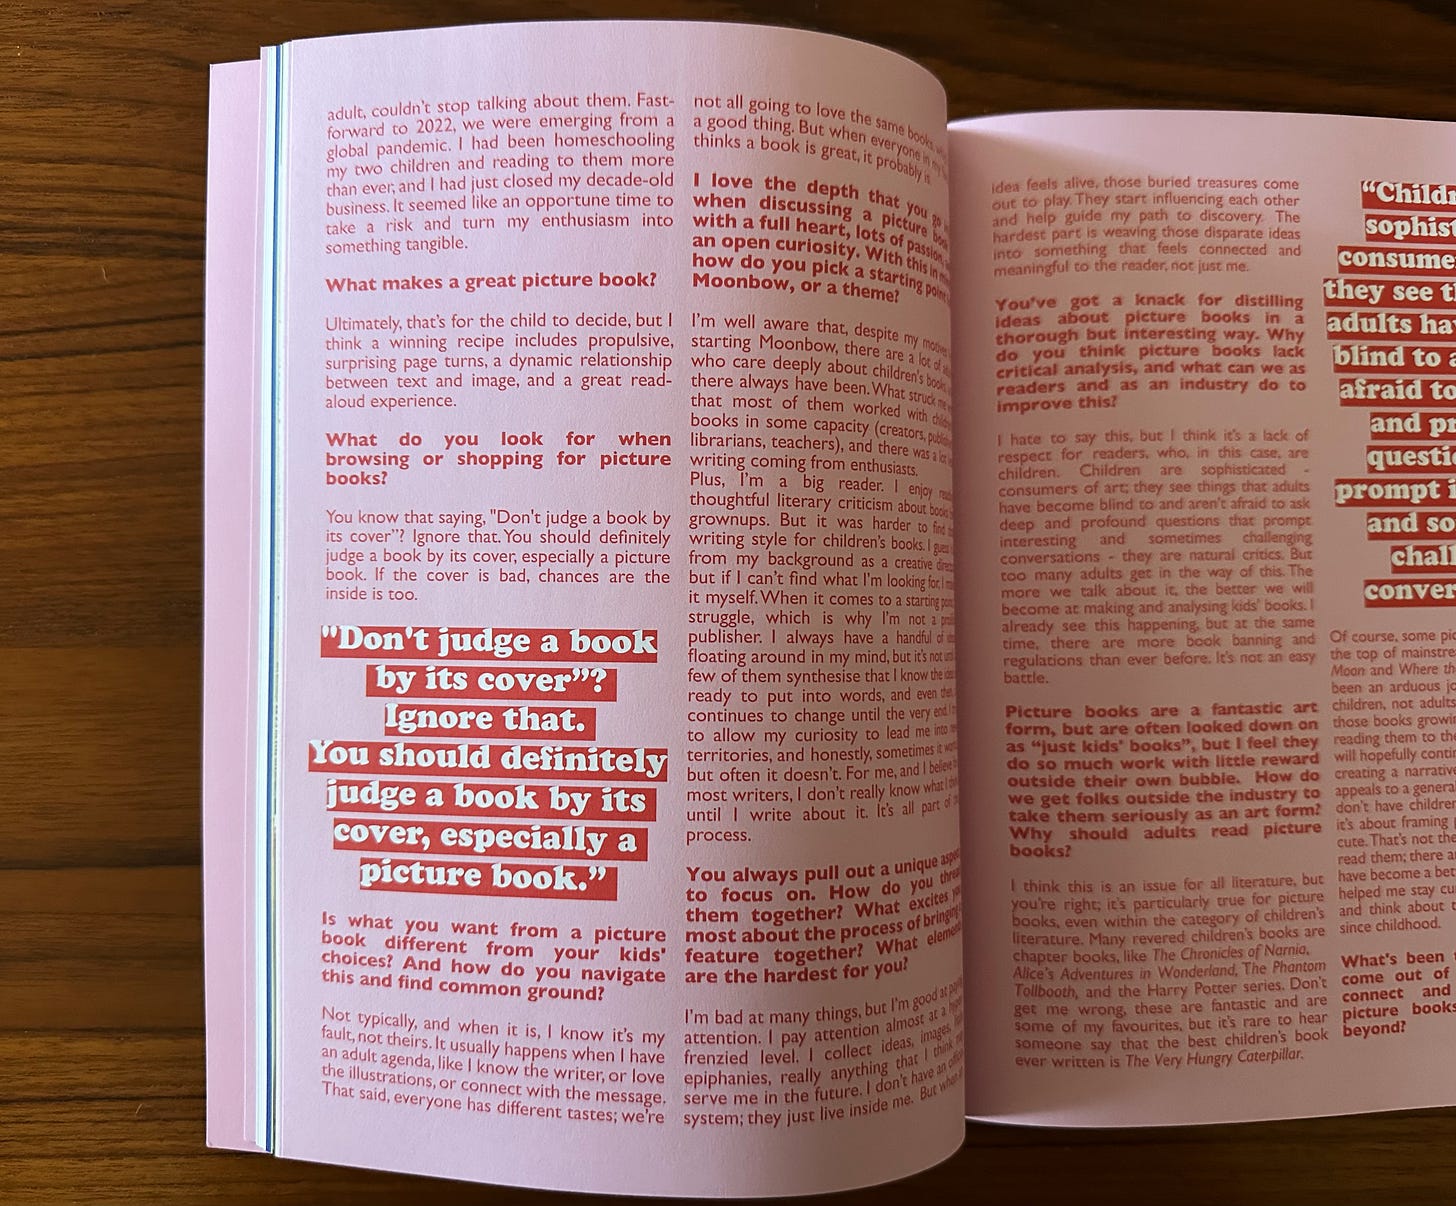 adult, couldn't stop talking about them. Fast-
forward to 2022, we were emerging from a
global pandemic. I had been homeschooling
my two children and reading to them more
than ever, and I had just closed my decade-old
business. It seemed like an opportune time to
take a risk and turn my enthusiasm into
something tangible.
What makes a great picture book?
Ultimately, that's for the child to decide, but I
think a winning recipe includes propulsive,
surprising page turns, a dynamic relationship
between text and image, and a great read-
aloud experience.
What do you look for when
browsing or shopping for picture
books?
You know that saying, "Don't judge a book by
its cover"? Ignore that. You should definitely
judge a book by its cover, especially a picture
book. If the cover is bad, chances are the
inside is too.
"Don't judge a book
by its cover”?
Ignore that.
You should definitely
judge a book by its
cover, especially a
picture book.”
Is what you want from a picture
book different from your kids'
choices? And how do you navigate
this and find common ground?
Not typically, and when it is, I know it's my
fault, not theirs. It usually happens when I have
an adult agenda, like I know the writer, or love
the illustrations, or connect with the message.
That said, everyone has different tastes; we're
not all going to love the same books,
a good thing. But when everyone in my
thinks a book is great, it probably is.
I love the depth that you go
when discussing a picture book
with a full heart, lots of passion,
an open curiosity. With this in
how do you pick a starting point
Moonbow, or a theme?
I'm well aware that, despite my
starting Moonbow, there are a lot of
who care deeply about children's books,
there always have been. What struck me
that most of them worked with
books in some capacity (creators,
librarians, teachers), and there was a
writing coming from enthusiasts.
Plus, I'm a big reader. I enjoy
thoughtful literary criticism about books
grownups. But it was harder to find
writing style for children's books. I guess
from my background as a creative
but if I can't find what I'm looking for, I
it myself. When it comes to a starting
struggle, which is why I'm not a
publisher. I always have a handful of
floating around in my mind, but it's not
few of them synthesise that I know the
ready to put into words, and even then,
continues to change until the very end. I
to allow my curiosity to lead me into
territories, and honestly, sometimes it
but often it doesn't. For me, and I believe
most writers, I don't really know what I
until I write about it. It's all part of
process.
You always pull out a unique
to focus on. How do you
them together? What excites you
most about the process of bringing
feature together? What
are the hardest for you?
I'm bad at many things, but I'm good at
attention. I pay attention almost at a
frenzied level. I collect ideas, images,
epiphanies, really anything that I think
serve me in the future. I don't have an
system; they just live inside me. But when
idea feels alive, those buried treasures come
out to play. They start influencing each other
and help guide my path to discovery. The
hardest part is weaving those disparate ideas
into something that feels connected and
meaningful to the reader, not just me.
You've got a knack for distilling
ideas about picture books in a
thorough but interesting way. Why
do you think picture books lack
critical analysis, and what can we as
readers and as an industry do to
improve this?
I hate to say this, but I think it's a lack of
respect for readers, who, in this case, are
children. Children are sophisticated -
consumers of art; they see things that adults
have become blind to and aren't afraid to ask
deep and profound questions that prompt
interesting and sometimes challenging
conversations - they are natural critics. But
too many adults get in the way of this. The
more we talk about it, the better we will
become at making and analysing kids' books. I
already see this happening, but at the same
time, there are more book banning and
regulations than ever before. It's not an easy
battle.
Picture books are a fantastic art
form, but are often looked down on
as “just kids' books”, but I feel they
do so much work with little reward
outside their own bubble. How do
we get folks outside the industry to
take them seriously as an art form?
Why should adults read picture
books?
I think this is an issue for all literature, but
you're right; it's particularly true for picture
books, even within the category of children's
literature. Many revered children's books are
chapter books, like The Chronicles of Narnia,
Alice's Adventures in Wonderland, The Phantom
Tollbooth, and the Harry Potter series. Don't
get me wrong, these are fantastic and are
some of my favourites, but it's rare to hear
someone say that the best children's book
ever written is The Very Hungry Caterpillar.
“Childr
sophist
consume
they see t
adults ha
blind to
afraid to
and pr
questi
prompt i
and so
chal
conver
Of course, some pic
the top of mainstre
Moon and Where th
been an arduous jo
children, not adults
those books growi
reading them to the
will hopefully conti
creating a narrative
appeals to a genera
don't have children
it's about framing
cute. That's not the
read them; there a
have become a bet
helped me stay cu
and think about t
since childhood.
What's been
come out of
connect and
picture books
beyond?